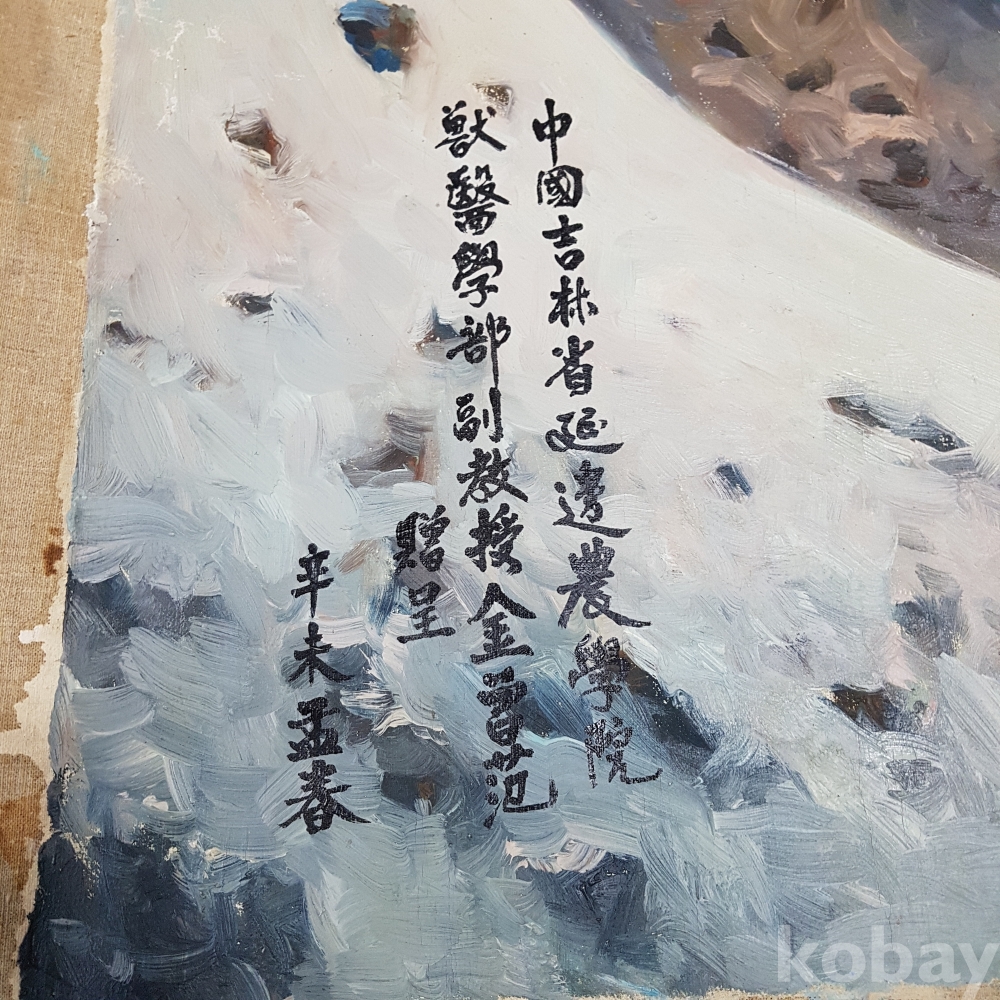 中國吉林省延邊農學院
獸醫學部副教授金范
贈呈
辛未孟春
kobay